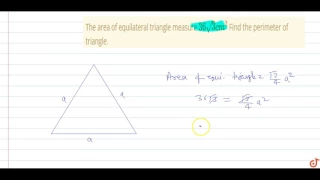 The area of equilateral triangle measure 36√3cm² Find the perimeter of
triangle.
Area of equi. triangle = √3/4 a²
36√3 = √3/4 a²
a
a
a